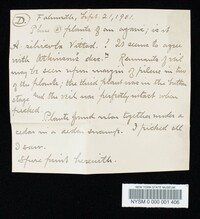 D
Falmouth, Sept. 21, 1901.
These 3 plants of an agaric; is it
A. silvicola Vittad.? It seems to agree
with Atkinson's desc. Remnants of veil
may be seen upon margin of pileus in two
of the plants; the third plant was in the button
stage and the veil was perfectly intact when
picked.
Plants found near together under a
cedar in a cedar swamp. I picked all
I saw.
Spore print herewith.
NEW YORK STATE MUSEUM
NYSM 0 000 001 406